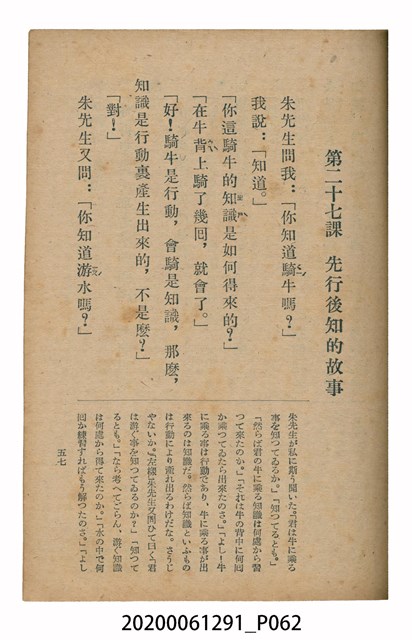 第二十七課　先行後知的故事
朱先生問我：「你知道騎牛嗎？」
我說：「知道。」
「你這騎牛的知識是如何得來的？」
「在牛背上騎了幾回，就會了。」
「好！騎牛是行動，會騎是知識，那麼，
知識是行動裏產生出來的，不是麼？」
「對！」
朱先生又問：「你知道游水嗎？」
朱先生が私に斯う聞いた。「君は牛に乘る
事を知つてゐるか。」「知つてるとも。」
「然らば君の牛に乘る知識は何處から習
つて來たのか。」「それは牛の背中に何回
か乘つてゐたら出來たのさ。」「よし！牛
に乘る事は行動であり、牛に乘る事が出
來るのは知識だ。然らば知識といふもの
は行動により産れ出るわけだな。さうじ
やないか。」「左樣」朱先生又問ひて曰く「君
は游ぐ事を知つてゐるのか？」「知つて
るとも。」「なら考へてごらん、游ぐ知識
は何處から得て來たのか。」「水の中で何
回か練習すればもう解つたのさ。」「よし
五七
20200061291_P062